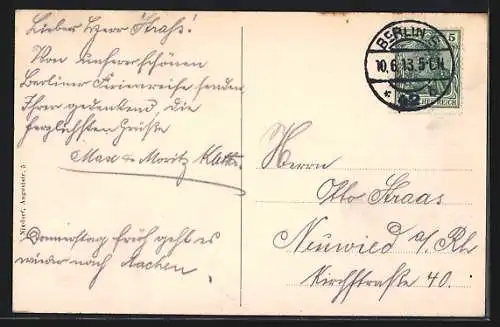 Lieber Herr Straß!
Von unserer schönen
Berliner Ferienreise senden
Ihrer gedenkend, die
herzlichsten Grüße
Max & Moritz
Donnerstag früh geht es
wieder nach Aachen
Nixdorf, Auguststr. 5
BERLIN S.
10.6.13.5-6N.
* 42
5
REICH
Herrn
Otto Straas
Neuwied a/Rh
Kirchstraße 40.